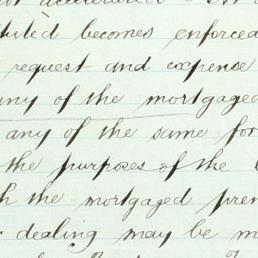 not accelerated
becomes enforced
request and expense
any of the mortgaged
any of the same for
the purposes of the
the mortgaged prem
dealing may be m